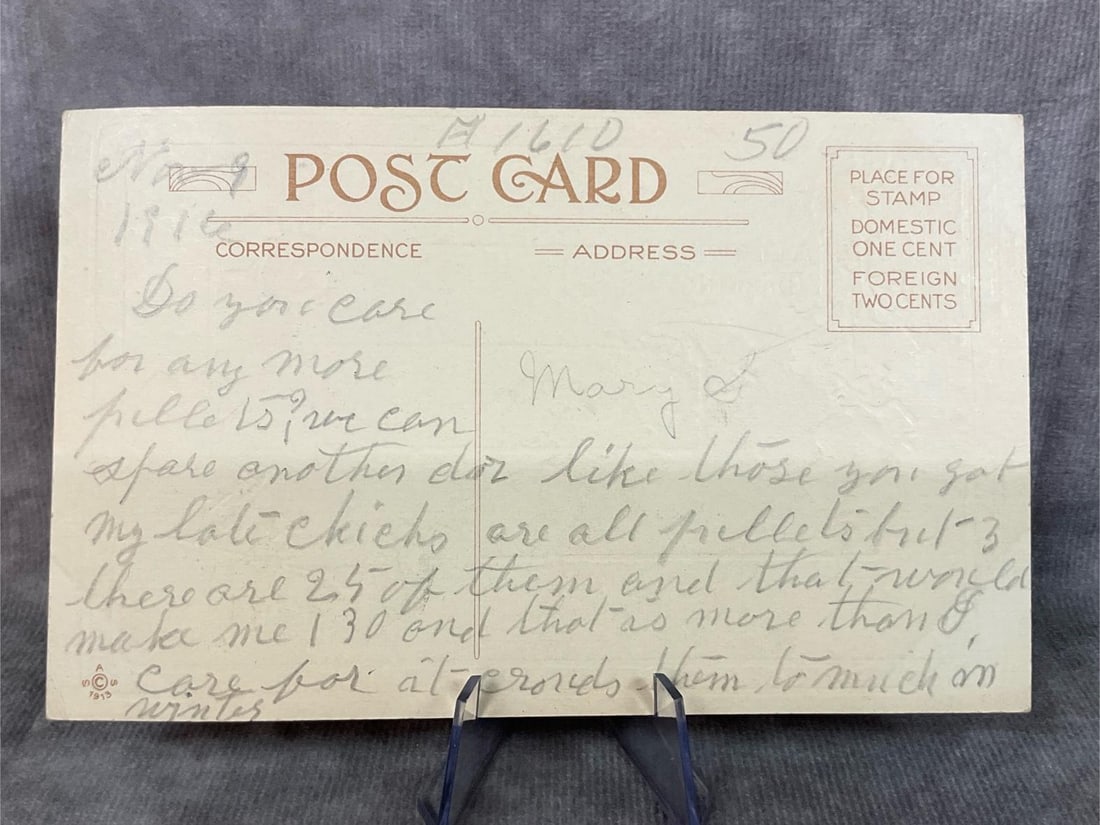 # 1610 50
Nov 9
1916
POST CARD
CORRESPONDENCE
ADDRESS
PLACE FOR
STAMP
DOMESTIC
ONE CENT
FOREIGN
TWO CENTS
Do you care
for any more
pullets? we can
spare another doz like those you got
my late chicks are all pullets but 3
there are 25 of them and that would
make me 130 and that is more than I
care for it crouds them to much in
winter
Mary S
A S S
© 1913